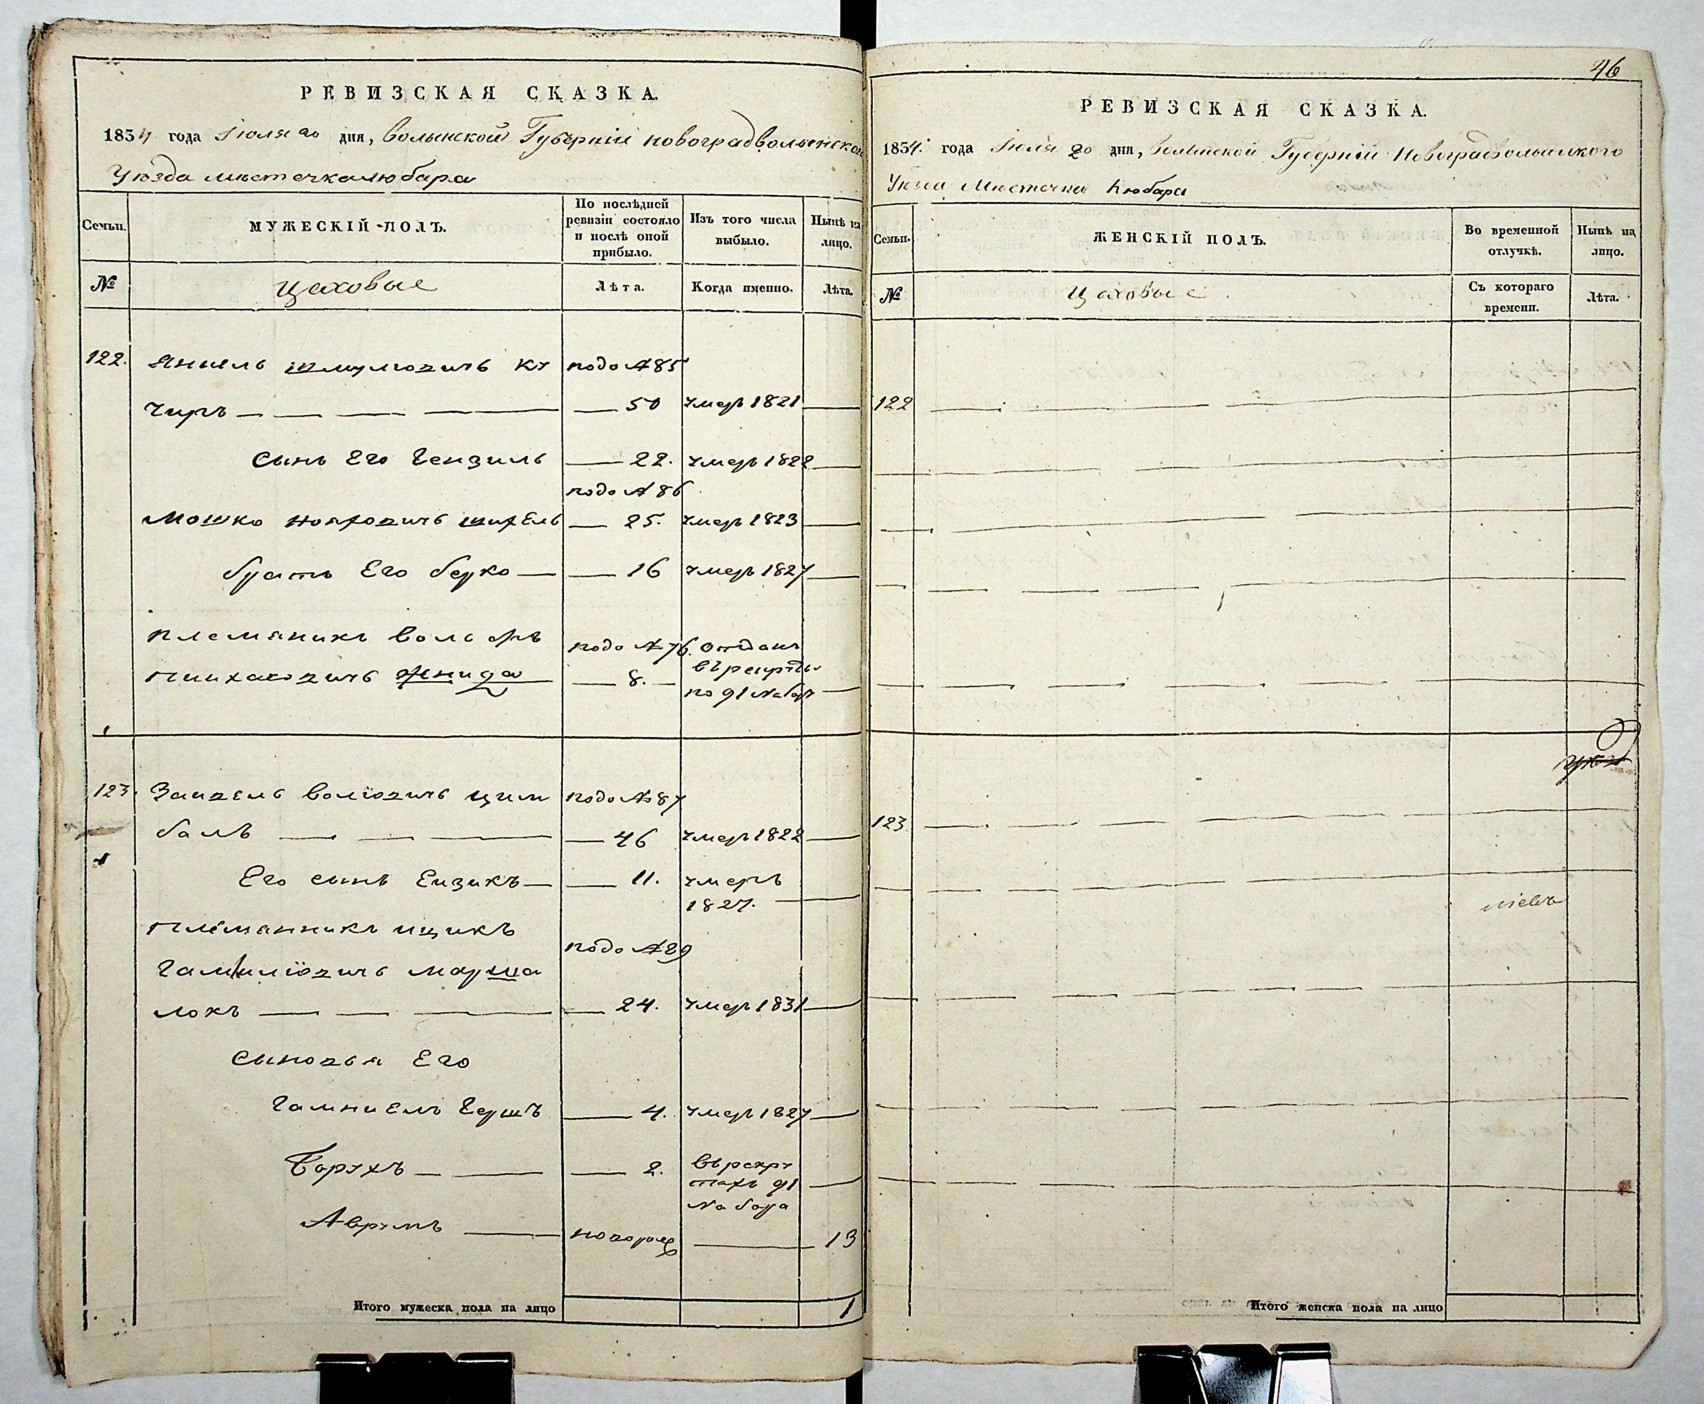 РЕВИЗСКАЯ СКАЗКА.
1834 года Іюля 20 дня, Волынской Губерніи новоградволынскаго
Уѣзда местечка любара
Семьи.
МУЖЕСКІЙ ПОЛЪ.
По послѣдней ревизіи состояло и послѣ оной прибыло.
Изъ того числа выбыло.
Нынѣ на лицо.
№
цеховые
Лѣта.
Когда именно.
Лѣта.
122.
шмулювичъ ку подо №85
чиръ — 50 умеръ 1821
сынъ Его Гензиль — 22. умеръ 1822
подо №86
Мошко — 25. умеръ 1823
братъ Его берко — 16 умеръ 1827
племяникъ вольфъ подо №76. отданъ
— 8. въ рекруты
по 91 набор
123. Зайвель волювичъ цим подо №87
балъ — 46 умеръ 1822
Его сынъ Ейзикъ — 11. умеръ
1827.
племанникъ ицикъ
подо №89
марша
локъ — 24. умеръ 1831
сыновья Его
Гершъ — 4. умеръ 1827
Борухъ — 2. въ рекру
тахъ 91
набора
Аврумъ — новорож — 13
Итого мужеска пола на лицо 1
46
РЕВИЗСКАЯ СКАЗКА.
1834 года Іюля 20 дня, Волынской Губерніи Новоградволынского
Уѣзда Местечка Любара
Семьи.
ЖЕНСКІЙ ПОЛЪ.
Во временной отлучкѣ.
Нынѣ на лицо.
№
Цеховые
Съ котораго времени.
Лѣта.
122
123
Итого женска пола на лицо